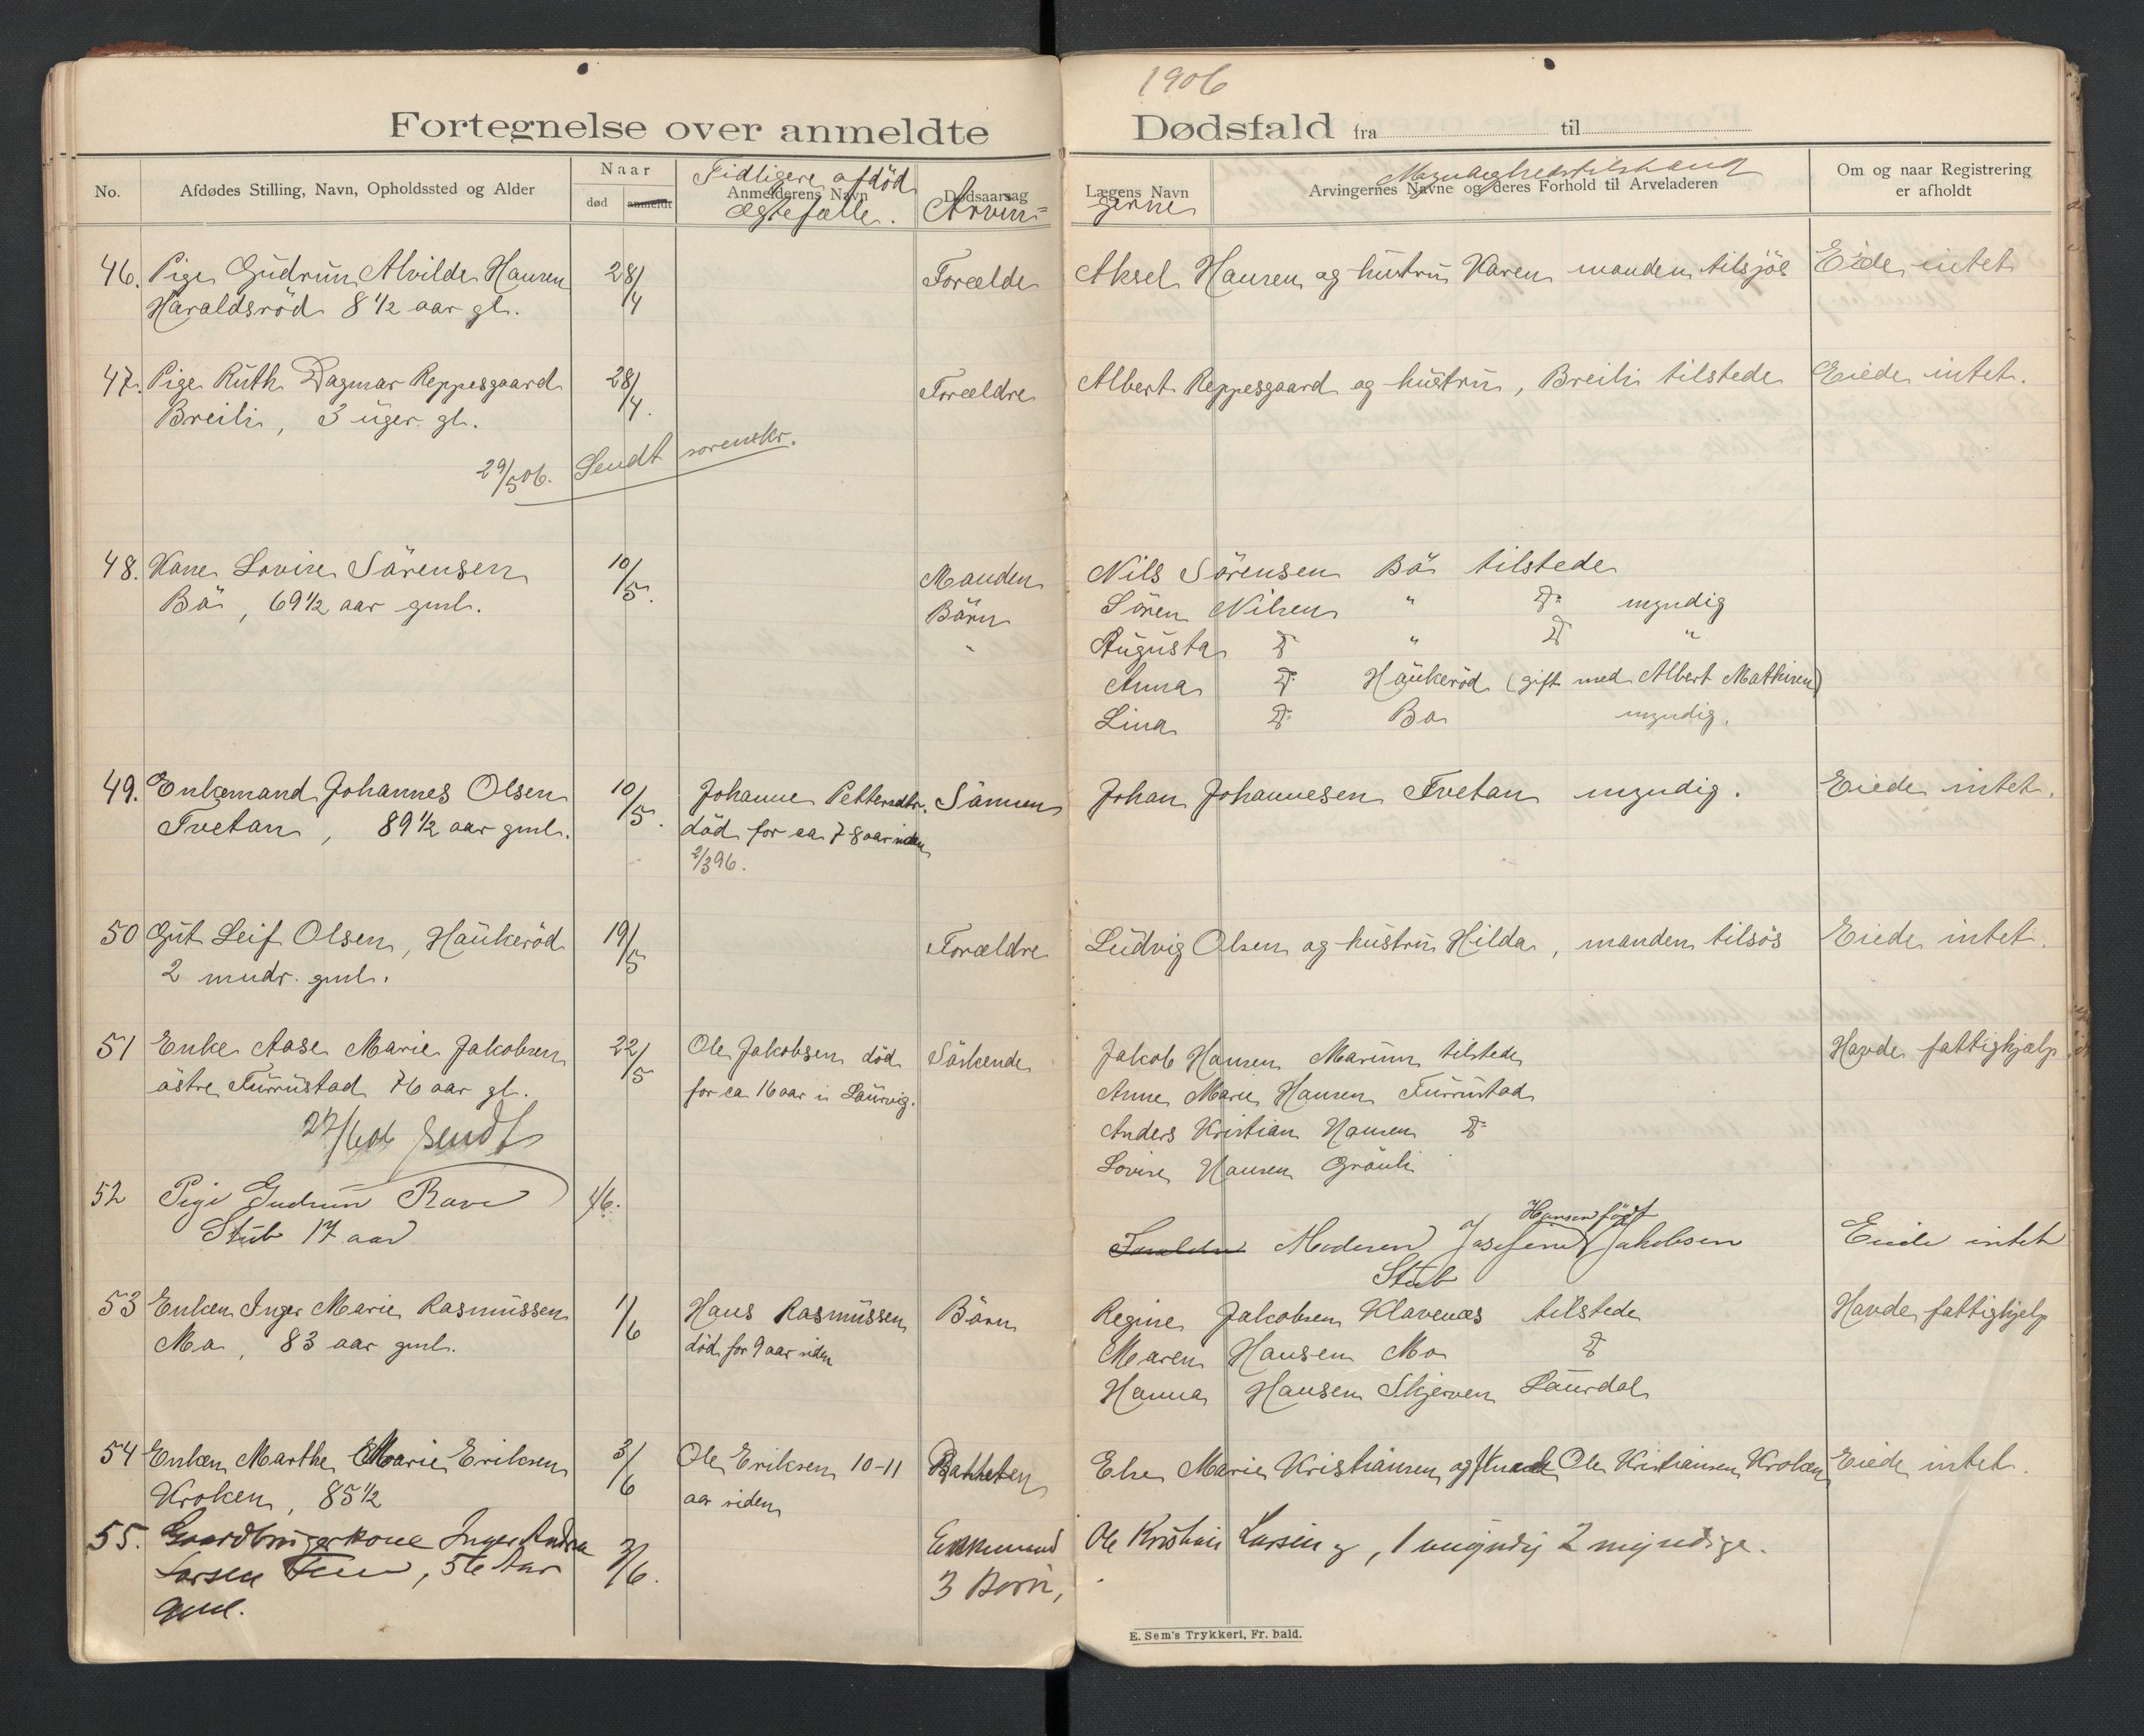 1906
Fortegnelse over anmeldte Dødsfald fra til
No. Afdødes Stilling, Navn, Opholdssted og Alder Naar død anmeldt Anmelderens Navn Dødsaarsag Lægens Navn Arvingernes Navne og deres Forhold til Arveladeren Om og naar Registrering er afholdt
Tidligere afdød Ægtefælle. Arvingerne Myndighedstilstand
46. Pige Gudrun Alvilde Hansen 28/4 Forælde Aksel Hansen og hustru Karen manden tilsjøs Eiede intet
Haraldsröd 8 1/2 aar gl.
47. Pige Ruth Dagmar Reppesgaard 28/4. Forældre Albert Reppesgaard og hustru, Breili tilstede Eiede intet.
Breili, 3 uger gl.
29/5 06. Sendt sorenskr.
48. Kone Lovise Sörensen 10/5. Manden Nils Sörensen Bö tilstede
Bö, 69 1/2 aar gml. Börn Sören Nilsen " Do myndig
" Augusta Do " Do "
Anna Do Haukeröd (gift med Albert Mathisen)
Lina Do Bö myndig.
49. Enkemand Johannes Olsen 10/5. Johanne Pettersdtr. Sönnen Johan Johannesen Tvetan myndig. Eiede intet.
Tvetan, 89 1/2 aar gml. död for ca 7-8 aar siden
2/3 96.
50 Gut Leif Olsen, Haukeröd 19/5 Forældre Ludvig Olsen og hustru Hilda, manden tilsös Eiede intet.
2 mndr. gml.
51 Enke Aase Marie Jakobsen 22/5 Ole Jakobsen död Sörkende Jakob Hansen Marum tilstede Havde fattighjælp
östre Furrustad 76 aar gl. for ca 16 aar i Laurvig. Anne Marie Hansen Furrustad
Anders Kristian Hansen Do
27/6 06 sendt Lovise Hansen Gröuli
52 Pige Gudrun Rove 4/6. Forældre Moderen Josefine Hansen född Jakobsen Eiede intet
Stub 17 aar Stub
53 Enken Inger Marie Rasmussen 1/6 Hans Rasmussen Börn Regine Jakobsen Klavenæs tilstede Havde fattighjelp
Mo, 83 aar gml. död for 9 aar siden Maren Hansen Mo Do
Hanna Hansen Skjerven Laurdal
54 Enken Marthe Marie Eriksen 3/6 Ole Eriksen 10-11 Else Marie Kristiansen og Ole Kristiansen Kroken Eiede intet.
Kroken, 85 1/2 aar siden
55. Gaardbrugerkone Inger Andrea 3/6. Enkemand Ole Kristian Larsen og, 1 umyndig 2 myndige.
Larsen, 56 Aar 3 Börn,
gml.
E. Sem's Trykkeri, Fr. hald.